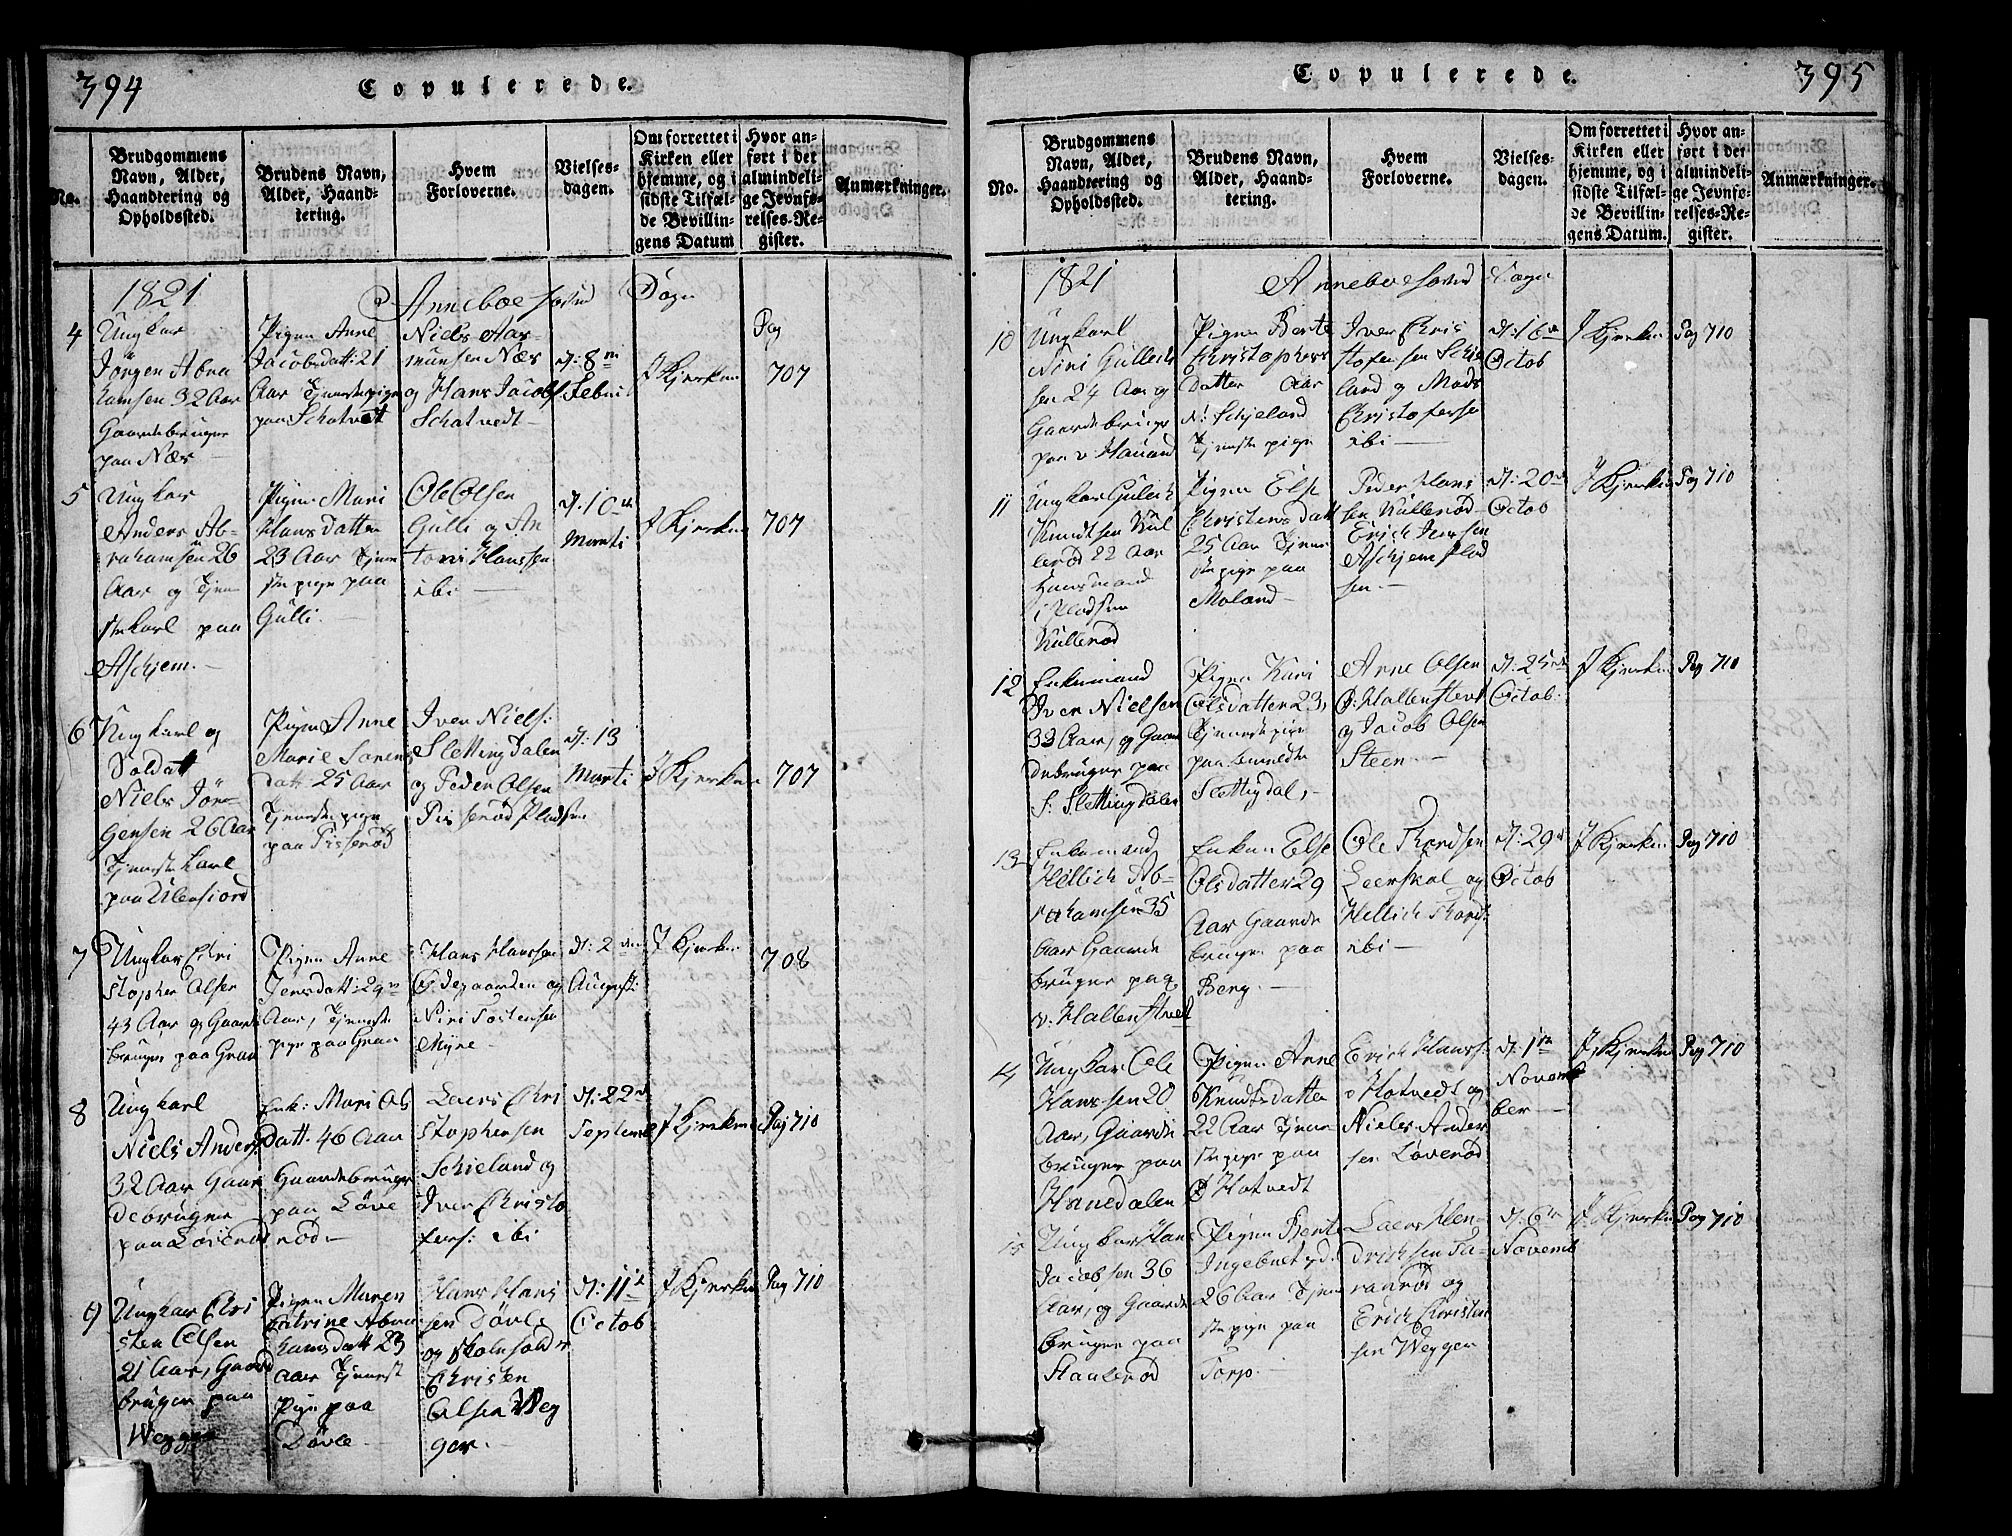 394
Copulerede.
No.
Brudgommens
Navn, Alder,
Haandtering og
Opholdssted.
Brudens Navn,
Alder, Haand-
tering.
Hvem
Forloverne.
Vielses-
dagen.
Om forrettet i
Kirken eller
hjemme, og i
sidste Tilfæl-
de Bevillin-
gens Datum
Hvor an-
ført i det
almindeli-
ge Jevnfø-
relses-Re-
gister.
Anmærkninger.
1821
Anneboe Sogn
4
Ungkar
Jörgen Abra
hamsen 32 Aar
Gaardebruger
paa Næs
Pigen Anne
Jacobsdatt: 21
Aar Tjenestepige
paa Schatvedt
Niels Aas-
munsen Næs
og Hans Jacobs
Schatvedt
d: 8de
Febru
J Kjerken
Pag
707
5
Ungkar
Anders Ab-
rahamsen 26
Aar og Tjene
stekarl paa
Aschjem
Pigen Mari
Hans Datter
23 Aar Tjene
stepige paa
Gulli
Ole Olsen
Gulli og An
toni Hanssen
ibi
d: 10de
Marti
J Kjerken
707
6
Ungkarl og
Soldat
Niels Jör-
gensen 26 Aar
Tjenestekarl
paa Ulensiord
Pigen Anne
Marie Sorens
Datt: 25 Aar
Tjenestepige
paa Pisserød
Iver Niels:
Sletting Dalen
og Peder Olsen
Pisserød Pladsen
d: 13
Marti
J Kjerken
707
7
Ungkar Chri
stopher Olsen
43 Aar og Gaarde
bruger paa Gran
Pigen Anne
Jensdatt: 29
Aar, Tjeneste
pige paa Gran
Hans Hanssen
Ødegaarden og
Niri Tostensen
Myre
d: 2den
August:
J Kjerken
708
8
Ungkarl
Niels Anders:
32 Aar Gaar
debruger
paa Løverød
Enk: Mari Ols
datt: 46 Aar
Gaardebruger
paa Löve
rød
Laers Chri
stophersen
Schieland og
Iver Christo
fers: ibi
d: 22de
Septemb
J Kjerken
Pag 710
9
Ungkar Chri
sten Olsen
21 Aar, Gaard
bruger paa
Wegger
Pigen Maren
Catrine Abra
hamsdatt 23
Aar Tjenest
Pige paa
Dövle
Hans Hans
sen Dövle
og Skoleholder
Christen
Olsen Weg
ger
d: 11te
Octob
J Kjerken
Pag 710
Copulerede.
395
No.
Brudgommens
Navn, Alder,
Haandtering og
Opholdssted.
Brudens Navn,
Alder, Haand-
tering.
Hvem
Forloverne.
Vielses-
dagen.
Om forrettet i
Kirken eller
hjemme, og i
sidste Tilfæl-
de Bevillin-
gens Datum.
Hvor an-
ført i det
almindeli-
ge Jevnfø-
relses-Re-
gister.
Anmærkninger.
1821
Anneboe Sogn
10
Ungkarl
Niri Gullich
sen 24 Aar og
Gaardebruger
paa v: Hauand
Pigen Berte
Christophers
datter Aar
n: Schjeland
Tjenestepige
Iver Chris
stofersen Schie
land og Mads
Christofersen
ibi
d: 16de
Octob
J Kjerken
Pag 710
11
Ungkar Gulich
Knudtsen Kul
lerød 22 Aar
Huusmand
i Pladsen
Kullerød
Pigen Else
Christensdatt
25 Aar Tjene
stepige paa
Moland
Peder Hans
sen Kullerød
Erich Iversen
Aschjem Plad
sen
d: 20de
Octob
J Kjerken
Pag 710
12
Enkemand
Iver Nielsen
33 Aar, og Gaar
debruger paa
S: Slettingdalen
Pigen Kari
Olsdatter 23,
Tjenestepige
paa bemeldte
Slettingdal,
Arne Olsen
Ø: Hallenstvet
og Jacob Olsen
Steen
d: 25de
Octob:
J Kjerken
Pag 710
13
Enkemand
Hellich Ab-
rahamsen 35
Aar Gaarde
bruger paa
v: Hallenstvet
Enken Else
Olsdatter 29
Aar Gaarde
bruger paa
Berg
Ole Thordsen
Leerskal og
Hellich Thords:
ibi
d: 29de
Octob
J Kjerken
Pag 710
14
Ungkar Ole
Hanssen 20
Aar, Gaarde
bruger paa
Hanedalen
Pigen Anne
Knudsdatter
22 Aar Tjene
stepige paa
Ø Hotvedt
Erich Hanss:
v Hotvedt og
Niels Ander
sen Løverød
d: 1ste
Novem
ber
J Kjerken
Pag 710
15
Ungkar Hans
Jacobsen 36
Aar, og Gaarde
bruger paa
Staalerød
Pigen Berte
Ingebretsd:
26 Aar Tjene
stepige paa
Torp
Laers Hen-
drichsen Ta-
ranrød og
Erich Christen
sen Weggen
d: 6te
Novemb
J Kjerken
Pag 710